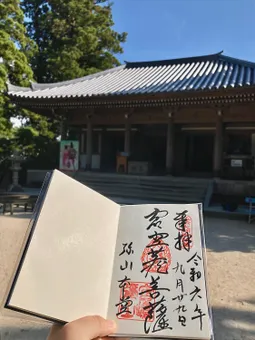 令和六年
奉拝
九月廿九日
虚空蔵菩薩
弥山本堂